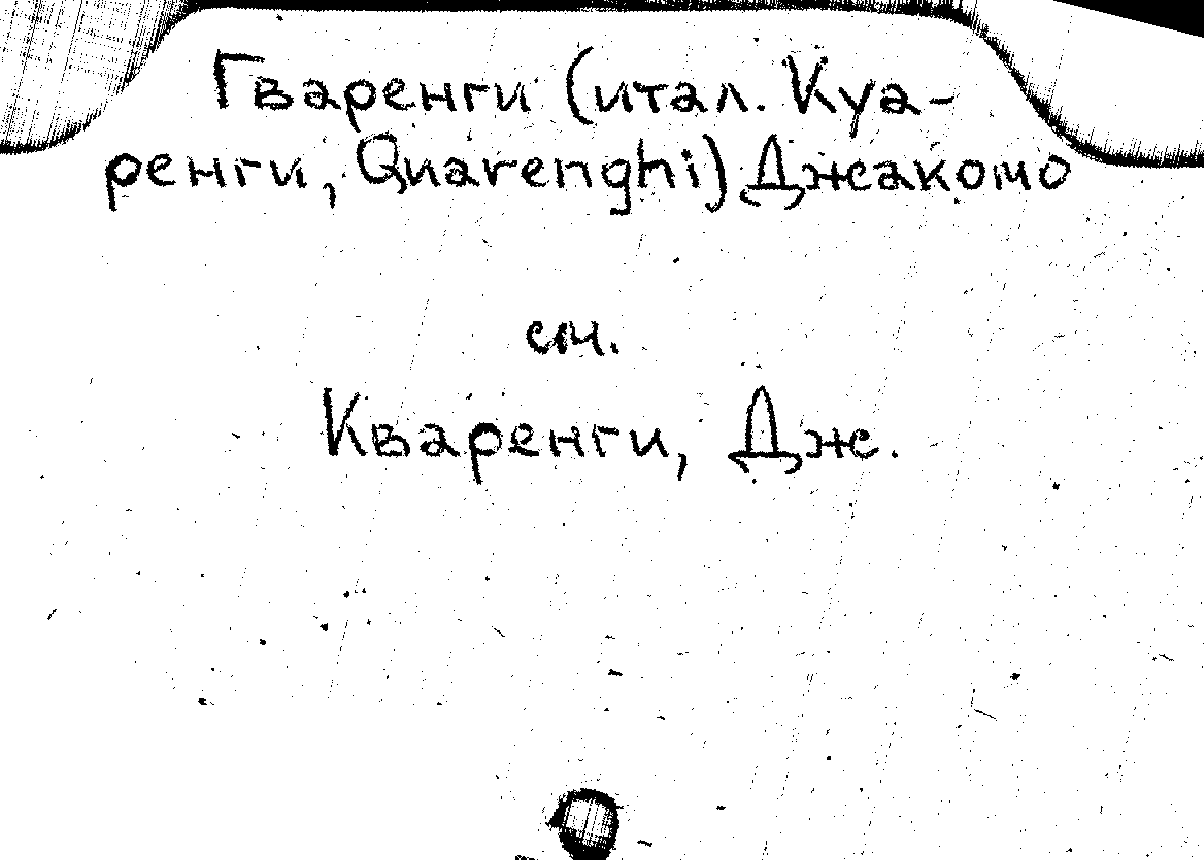 Гваренги (итал. Куа-
ренги, Quarenghi) Джакомо
см.
Кваренги, Дж.